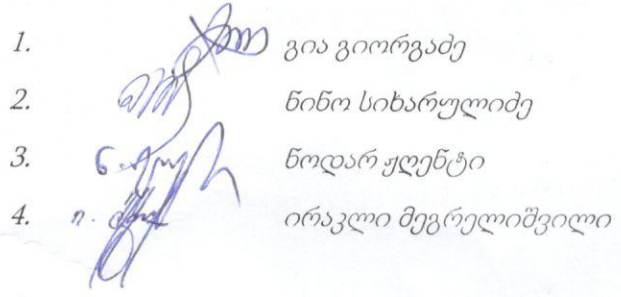 1. გია გიორგაძე
2. ნინო სიხარულიძე
3. ნოდარ ჟღენტი
4. ირაკლი მეგრელიშვილი